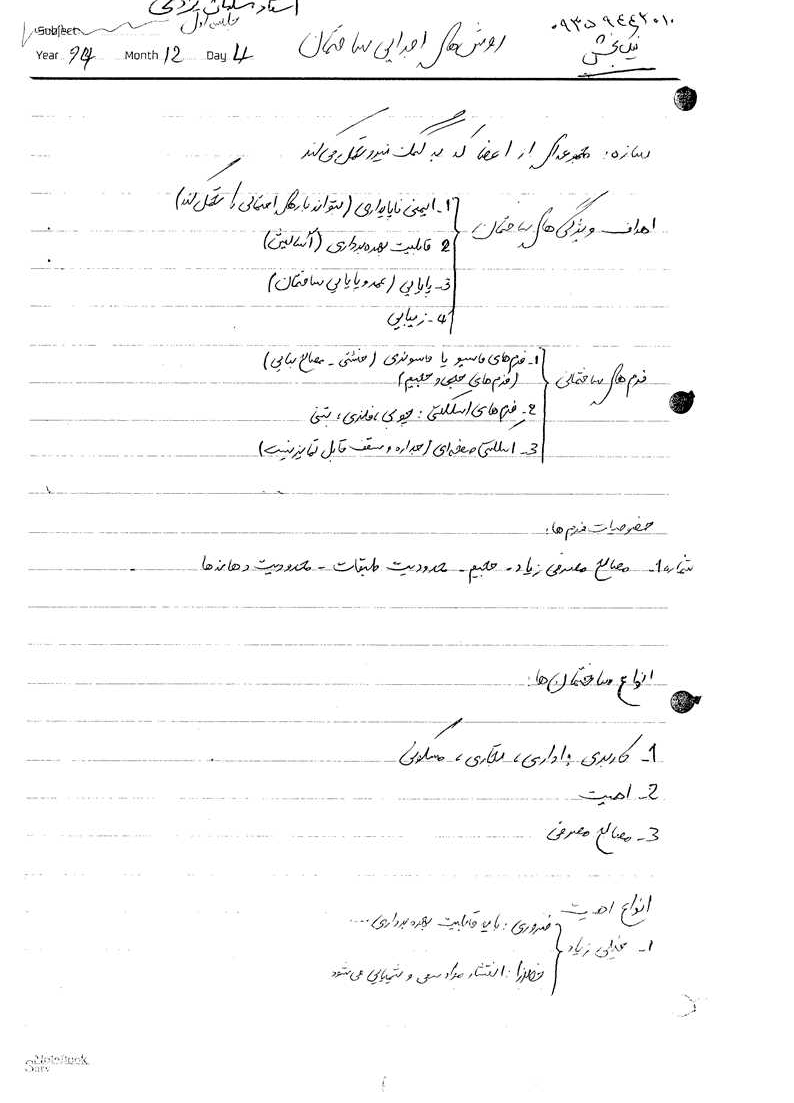 استاد سلمان یزدی
جلسه اول
Subject:
Year 94 Month 12 Day 4
روش های اجرایی ساختمان
۰۹۳۵۹۴۴۲۰۱۰
نیک بخش
سازه: مجموعه ای از اعضا که به کمک نیرو تحمل می کند
اهداف و ویژگی های ساختمان
1_ ایمنی ناپایداری (بتواند بارهای احتمالی را تحمل کند)
2 قابلیت بهره برداری (آسایش)
3_ پایایی (عمر و پایایی ساختمان)
4_ زیبایی
فرم های ساختمانی
1_ فرم های ماسیو یا ماسوندی (خشتی _ مصالح بنایی)
(فرم های حجمی و حجیم)
2_ فرم های اسکلتی: چوبی، فلزی، بتنی
3_ اسکلتی صفحه ای (جداره و سقف قابل تمایز نیست)
خصوصیات فرم ها:
شماره 1_ مصالح مصرفی زیاد _ حجیم _ محدودیت طبقات _ محدودیت دهانه ها
انواع ساختمان ها:
1_ کاربری: اداری، تجاری، مسکونی
2_ اهمیت
3_ مصالح مصرفی
انواع اهمیت
1_ خیلی زیاد
ضروری: باید قابلیت بهره برداری ....
خطرزا: انتشار مواد سمی و شیمیایی می شود
Notebook